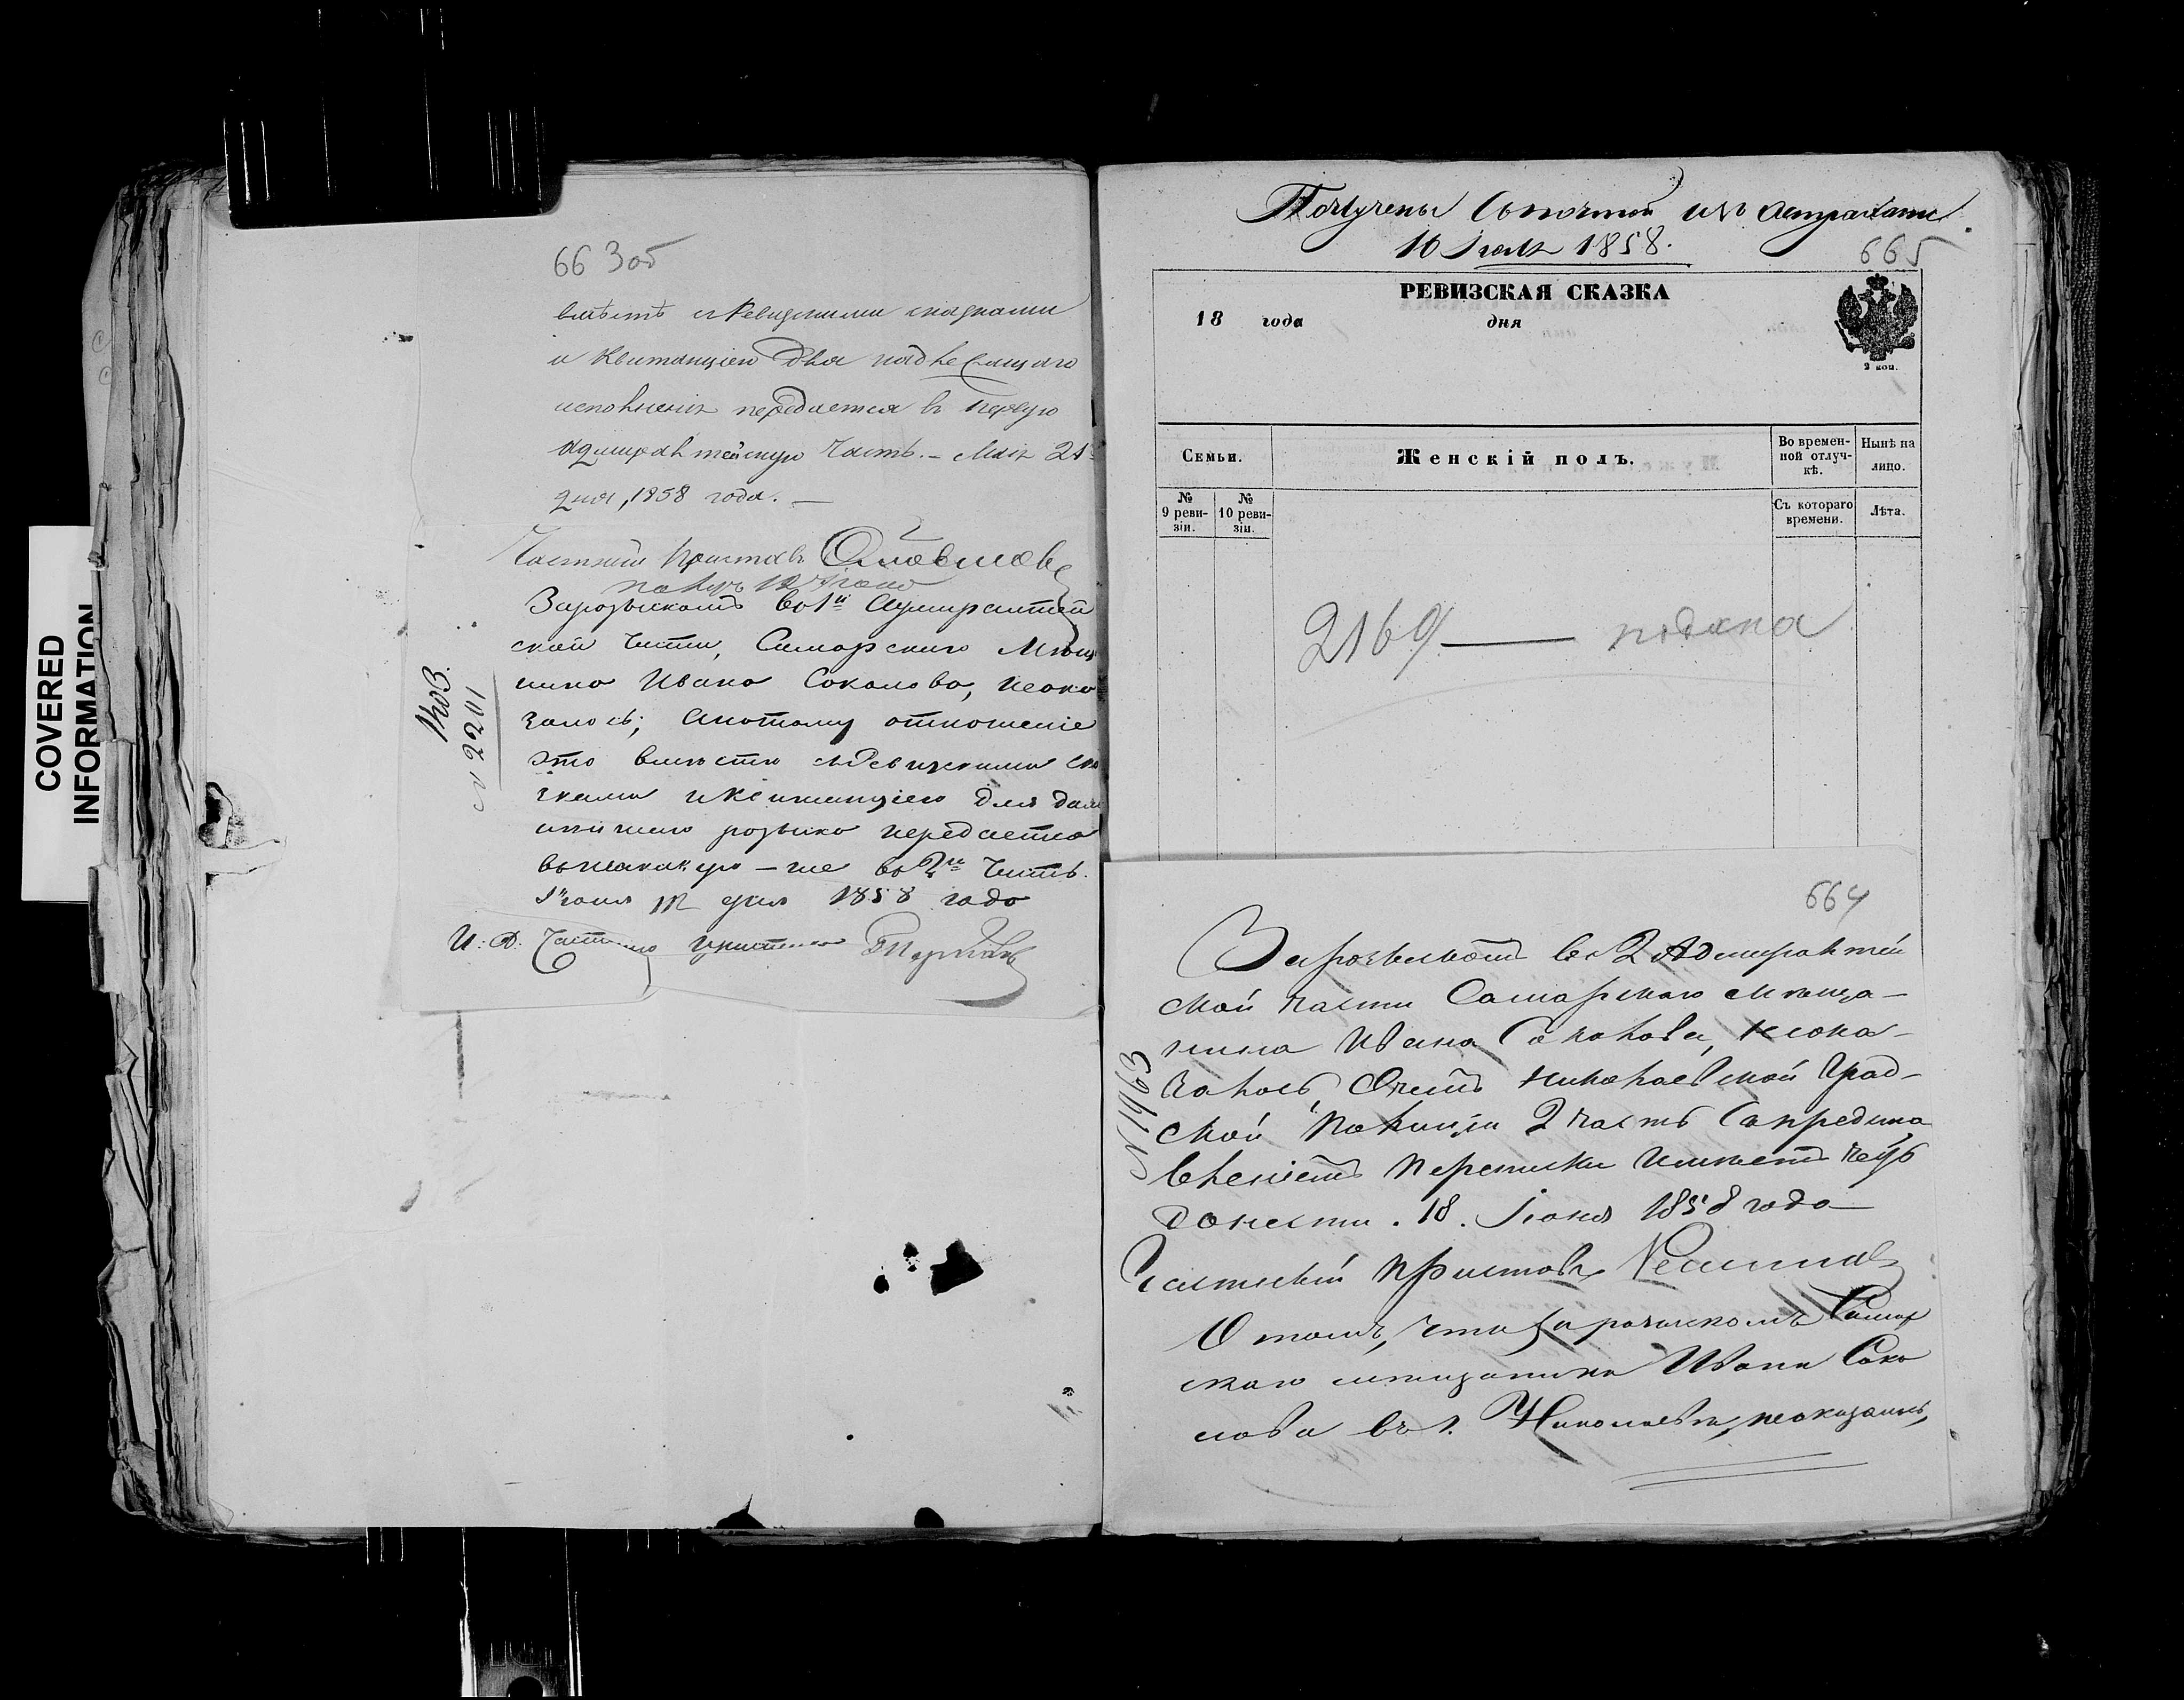 COVERED
INFORMATION
663об
вмѣстѣ съ Ревизскими сказками
и Квитанціею для надлежащаго
исполненія передается въ Первую
Адмиралтейскую Часть. – Мая 21
дня, 1858 года. –
Частный Приставъ
За розыскомъ въ 1й Адмиралтей
ской Части, Самарскаго Мѣща
нина Ивана Соколова, неока
залось; а потому отношеніе
это вмѣстѣ съ Ревизскими ска
зками и Квитанціею для даль
нѣйшаго розыска передается
въ таковую-же во 2ю Часть.
Іюня 12 дня 1858 года
И: Д: Частнаго Пристава
№ 2201
Получены съ почтой изъ Астрахани
10 Іюля 1858.
665
РЕВИЗСКАЯ СКАЗКА
18 года дня
2 коп.
Семьи.
Женскій полъ.
Во времен-
ной отлуч-
кѣ.
Нынѣ на
лицо.
№
9 реви-
зіи.
№
10 реви-
зіи.
Съ котораго
времени.
Лѣта.
2169 — подана
664
За розыскомъ во 2 Адмиралтей
ской части Самарскаго мѣща–
нина Ивана Соколова, неока–
залось, о чемъ Николаевской Град–
ской Полиціи 2 часть съ предста
вленіемъ переписки имѣетъ честь
донести. 18. Іюня 1858 года
Частный Приставъ
№ 1963
О томъ, что за розыскомъ Самар
скаго мѣщанина Ивана Соко
лова въ г. Николаевѣ, неоказалось,